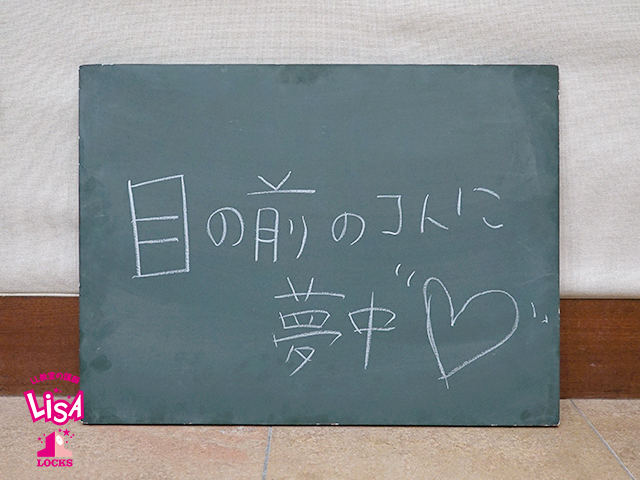 目の前のコトに
夢中♡
LiSA
LOCKS